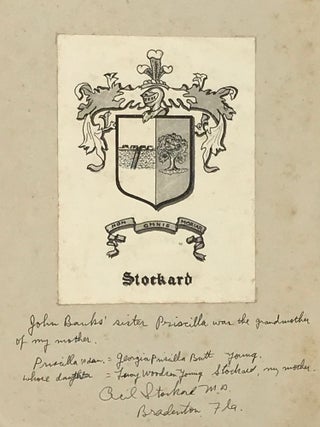 NON OMNIS MORIAR
Stockard
John Banks' sister Priscilla was the grandmother
of my mother.
Priscilla's dau. = Georgia Priscilla Butt Young,
whose daughter = Fanny Woodson Young Stockard, my mother.
Cecil Stockard M.D.
Bradenton Fla.